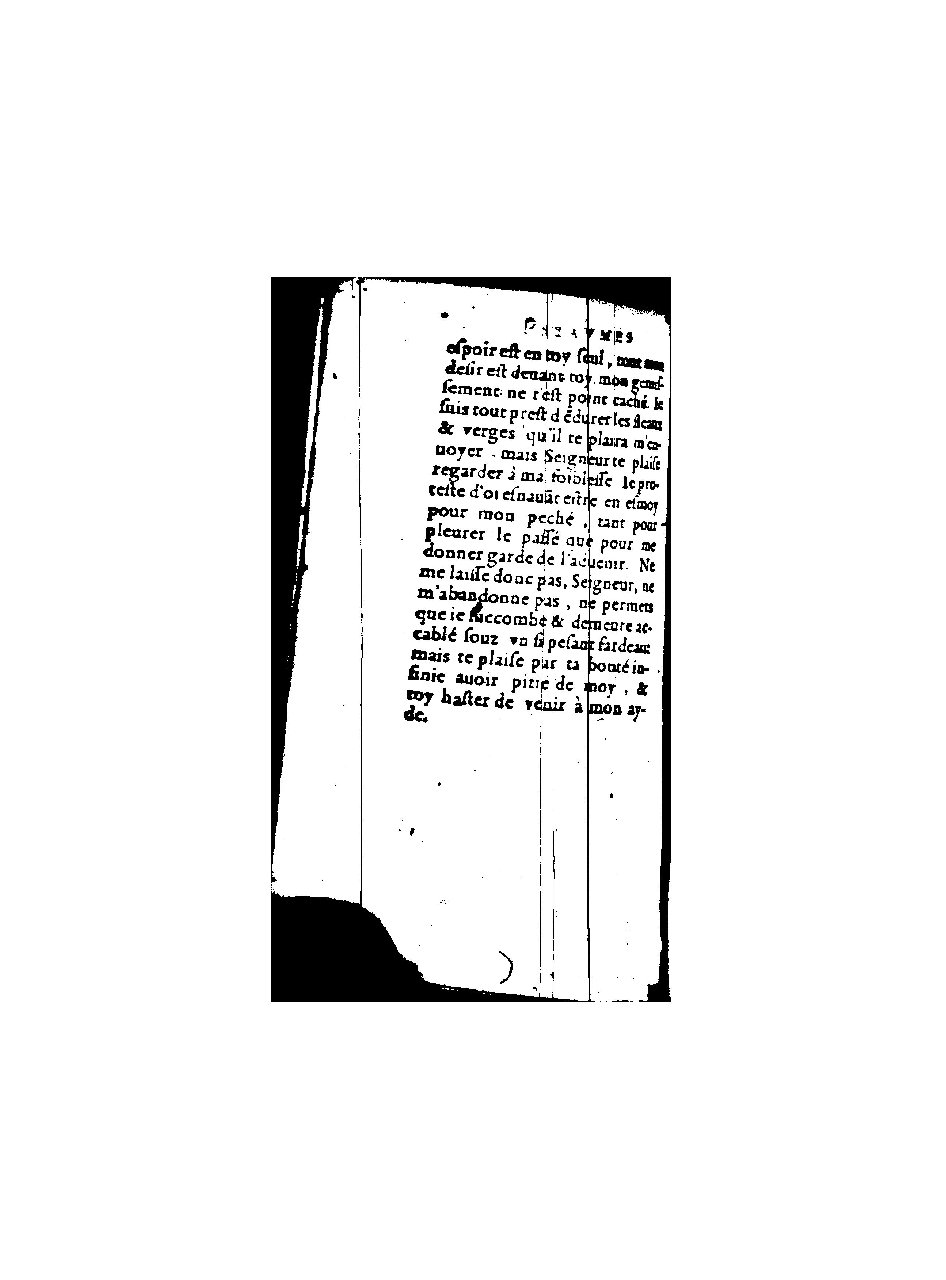 PSEAVMES
eſpoir eſt en toy ſeul, tout mon
deſir eſt deuant toy, mon gemiſ-
ſement ne t'eſt point caché. Ie
ſuis tout preſt d'ēdurer les fleaux
& verges qu'il te plaira m'en-
uoyer. mais Seigneur te plaiſe
regarder à ma foibleſſe. Ie pro-
teſte d'oreſnauāt eſtre en eſmoy
pour mon peché, tant pour
pleurer le paſſé que pour me
donner garde de l'aduenir. Ne
me laiſſe donc pas, Seigneur, ne
m'abandonne pas, ne permets
que ie ſuccombe & demeure ac-
cablé ſouz vn ſi peſant fardeau:
mais te plaiſe par ta bonté in-
finie auoir pitié de moy, &
toy haſter de venir à mon ay-
de.